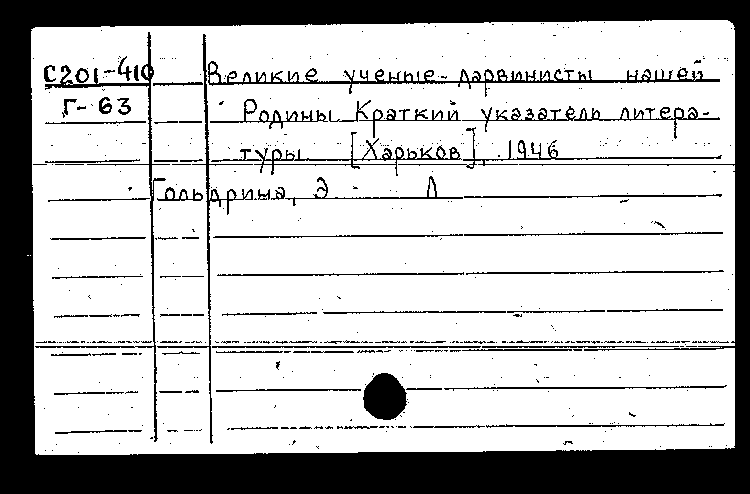 С201-410 Великие ученые-дарвинисты нашей
Г-63 Родины Краткий указатель литера-
туры [Харьков], 1946
Гольдрина, Э Л